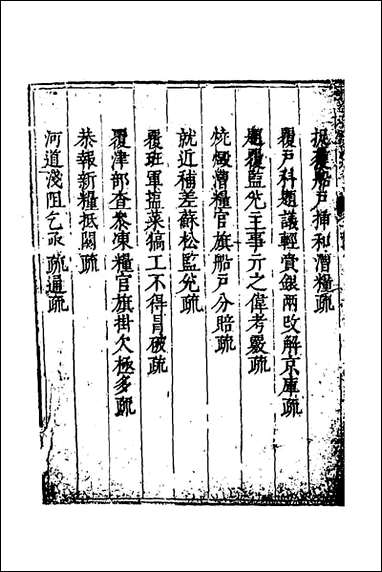 捉獲船戶揷和漕糧疏
覆戶科題議輕賫銀兩改解京庫疏
題覆監兌主事亓之偉考覈疏
燒燬漕糧官旗船戶分賠疏
就近補差蘇松監兌疏
覆班軍塩菜犒工不得冐破疏
覆津部查叅東糧官旗掛欠極多疏
恭報新糧抵関疏
河道淺阻乞亟疏通疏